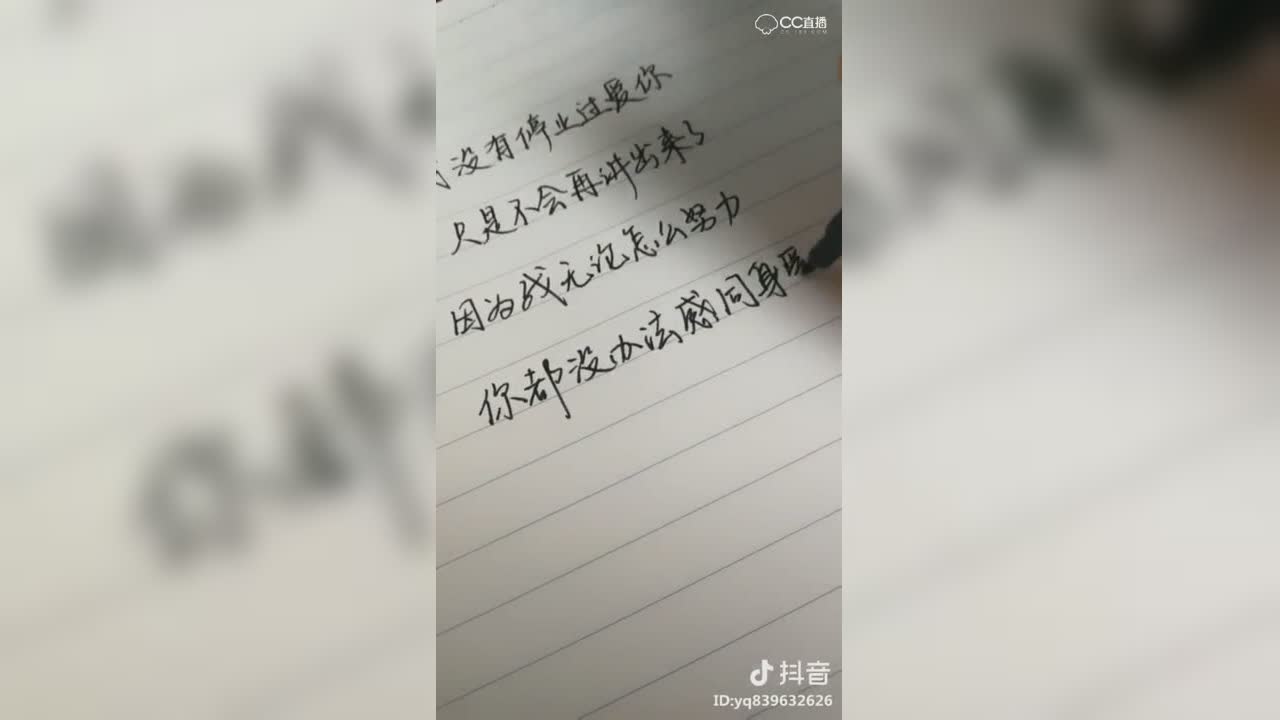 CC直播
CC.163.COM
没有停止过爱你
只是不会再讲出来了
因为我无论怎么努力
你都没办法感同身
抖音
ID:yq839632626